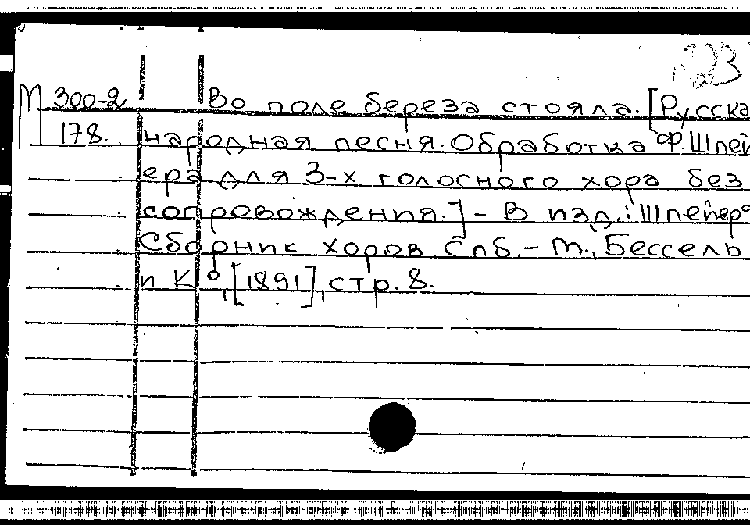 223
М 300-2 Во поле береза стояла. [Русска
178. народная песня. Обработка Ф. Шпей
ера для 3-х голосного хора без
сопровождения.] - В изд.: Шпейер Ф
Сборник хоров Спб, - М., Бессель
и К°, [1891], стр. 8.